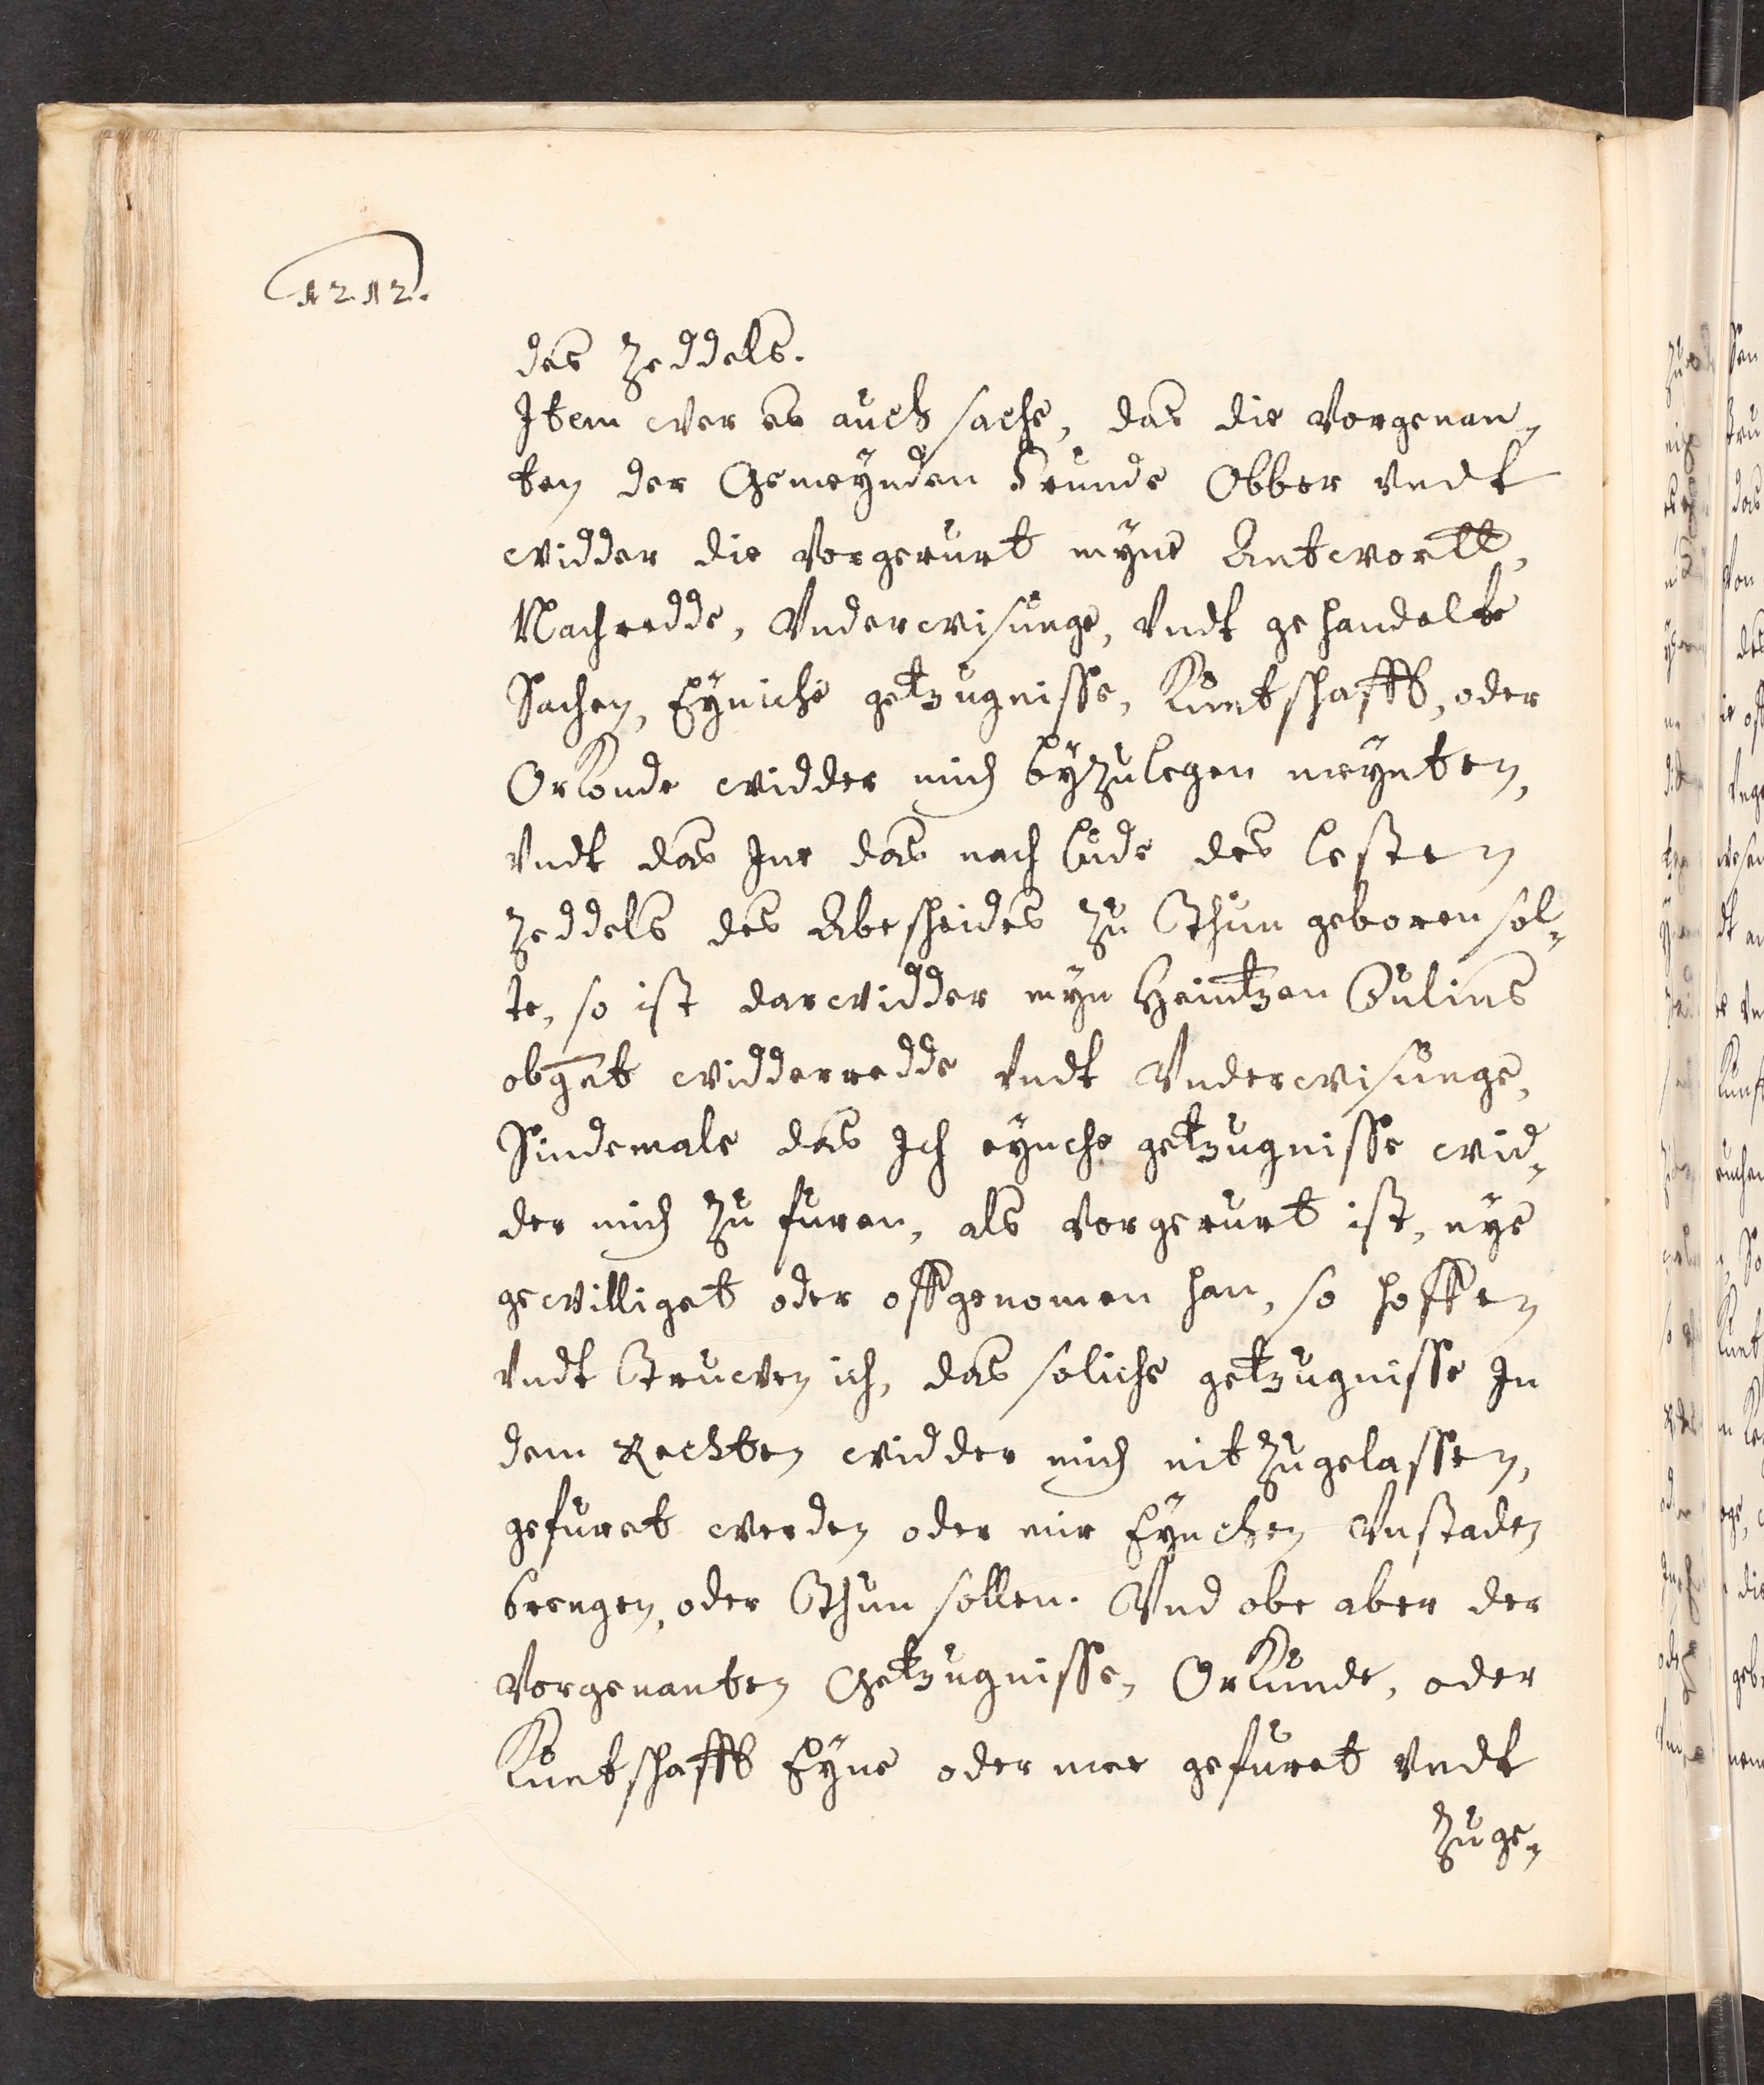 1212.
des Zeddels.
Item wer es auch sache, das die Vorgenan-
ten der Gemeynden Frunde Obber vndt
widder die Vorgerurt myne Antwortt,
Nachredde, Vnderwisunge, Vndt gehandelte
Sachen, Eyniche getzugnisse, Kuntschafft, oder
Orkonde widder mich byzulegen meynten,
Vndt das Ine das nach lude des lesten
Zeddels des Abescheides zu Thun geboren sol-
te, so ist darwidder myn Heintzen
obgnt widderredde vndt Vnderwisunge,
Sindemale das Ich eynche getzugnisse wid-
der mich zu furen, als Vorgerurt ist, nye
gewilliget oder offgenomen han, so hoffen
Vndt Truwen ich, das soliche getzugnisse In
dem Rechten widder mich nit zugelassen,
gefuret werden oder mir Eynchen Vnstaden
brengen, oder Thun sollen. Vnd obe aber der
Vorgenanten Getzugnisse, Orkunde, oder
Kuntschafft Eyne oder mee gefuret Vndt
zuge-